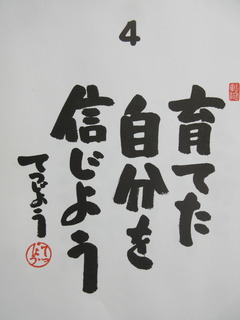 4
育てた
自分を
信じよう
てつじょう